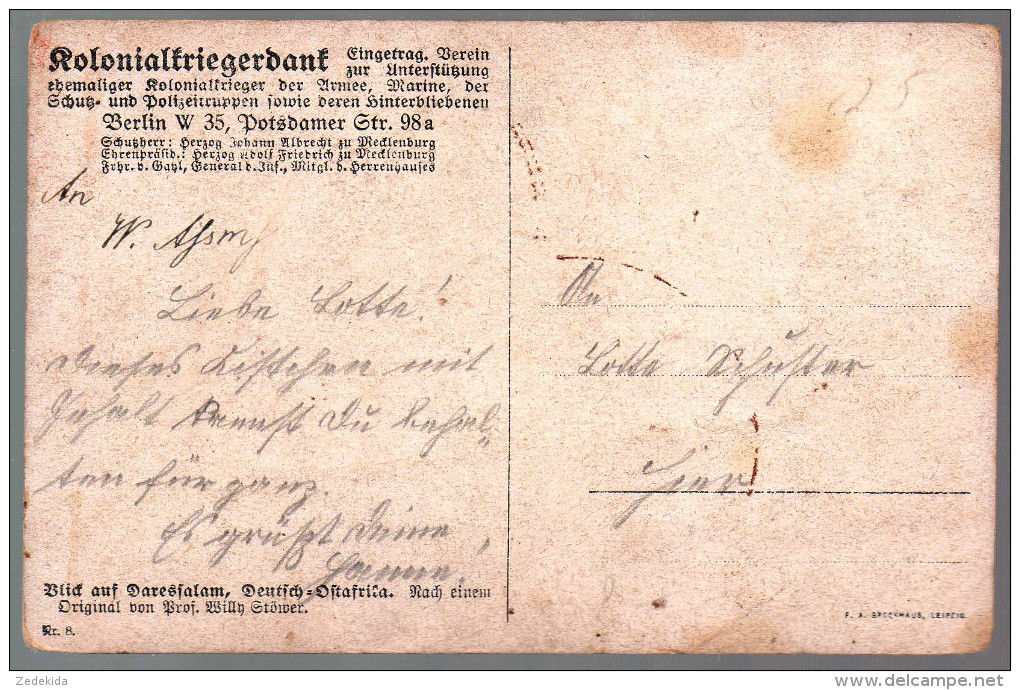 Kolonialkriegerdank Eingetrag. Verein
zur Unterstützung
ehemaliger Kolonialkrieger der Armee, Marine, der
Schutz- und Polizeitruppen sowie deren Hinterbliebenen
Berlin W 35, Potsdamer Str. 98a
Schutzherr: Herzog Johann Albrecht zu Mecklenburg
Ehrenpräsid.: Herzog Adolf Friedrich zu Mecklenburg
Frhr. v. Gayl, General d. Inf., Mitgl. d. Herrenhauses
An
W.
Liebe Lotte!
Dieses Kistchen mit
Inhalt kannst Du behal-
ten für ganz.
Es grüßt Deine
Hanna.
Blick auf Daressalam, Deutsch-Ostafrika. Nach einem
Original von Prof. Willy Stöwer.
Nr. 8.
An
Lotte Schuster
Hier
F. A. BROCKHAUS, LEIPZIG.
Zedekida
www.delcampe.net